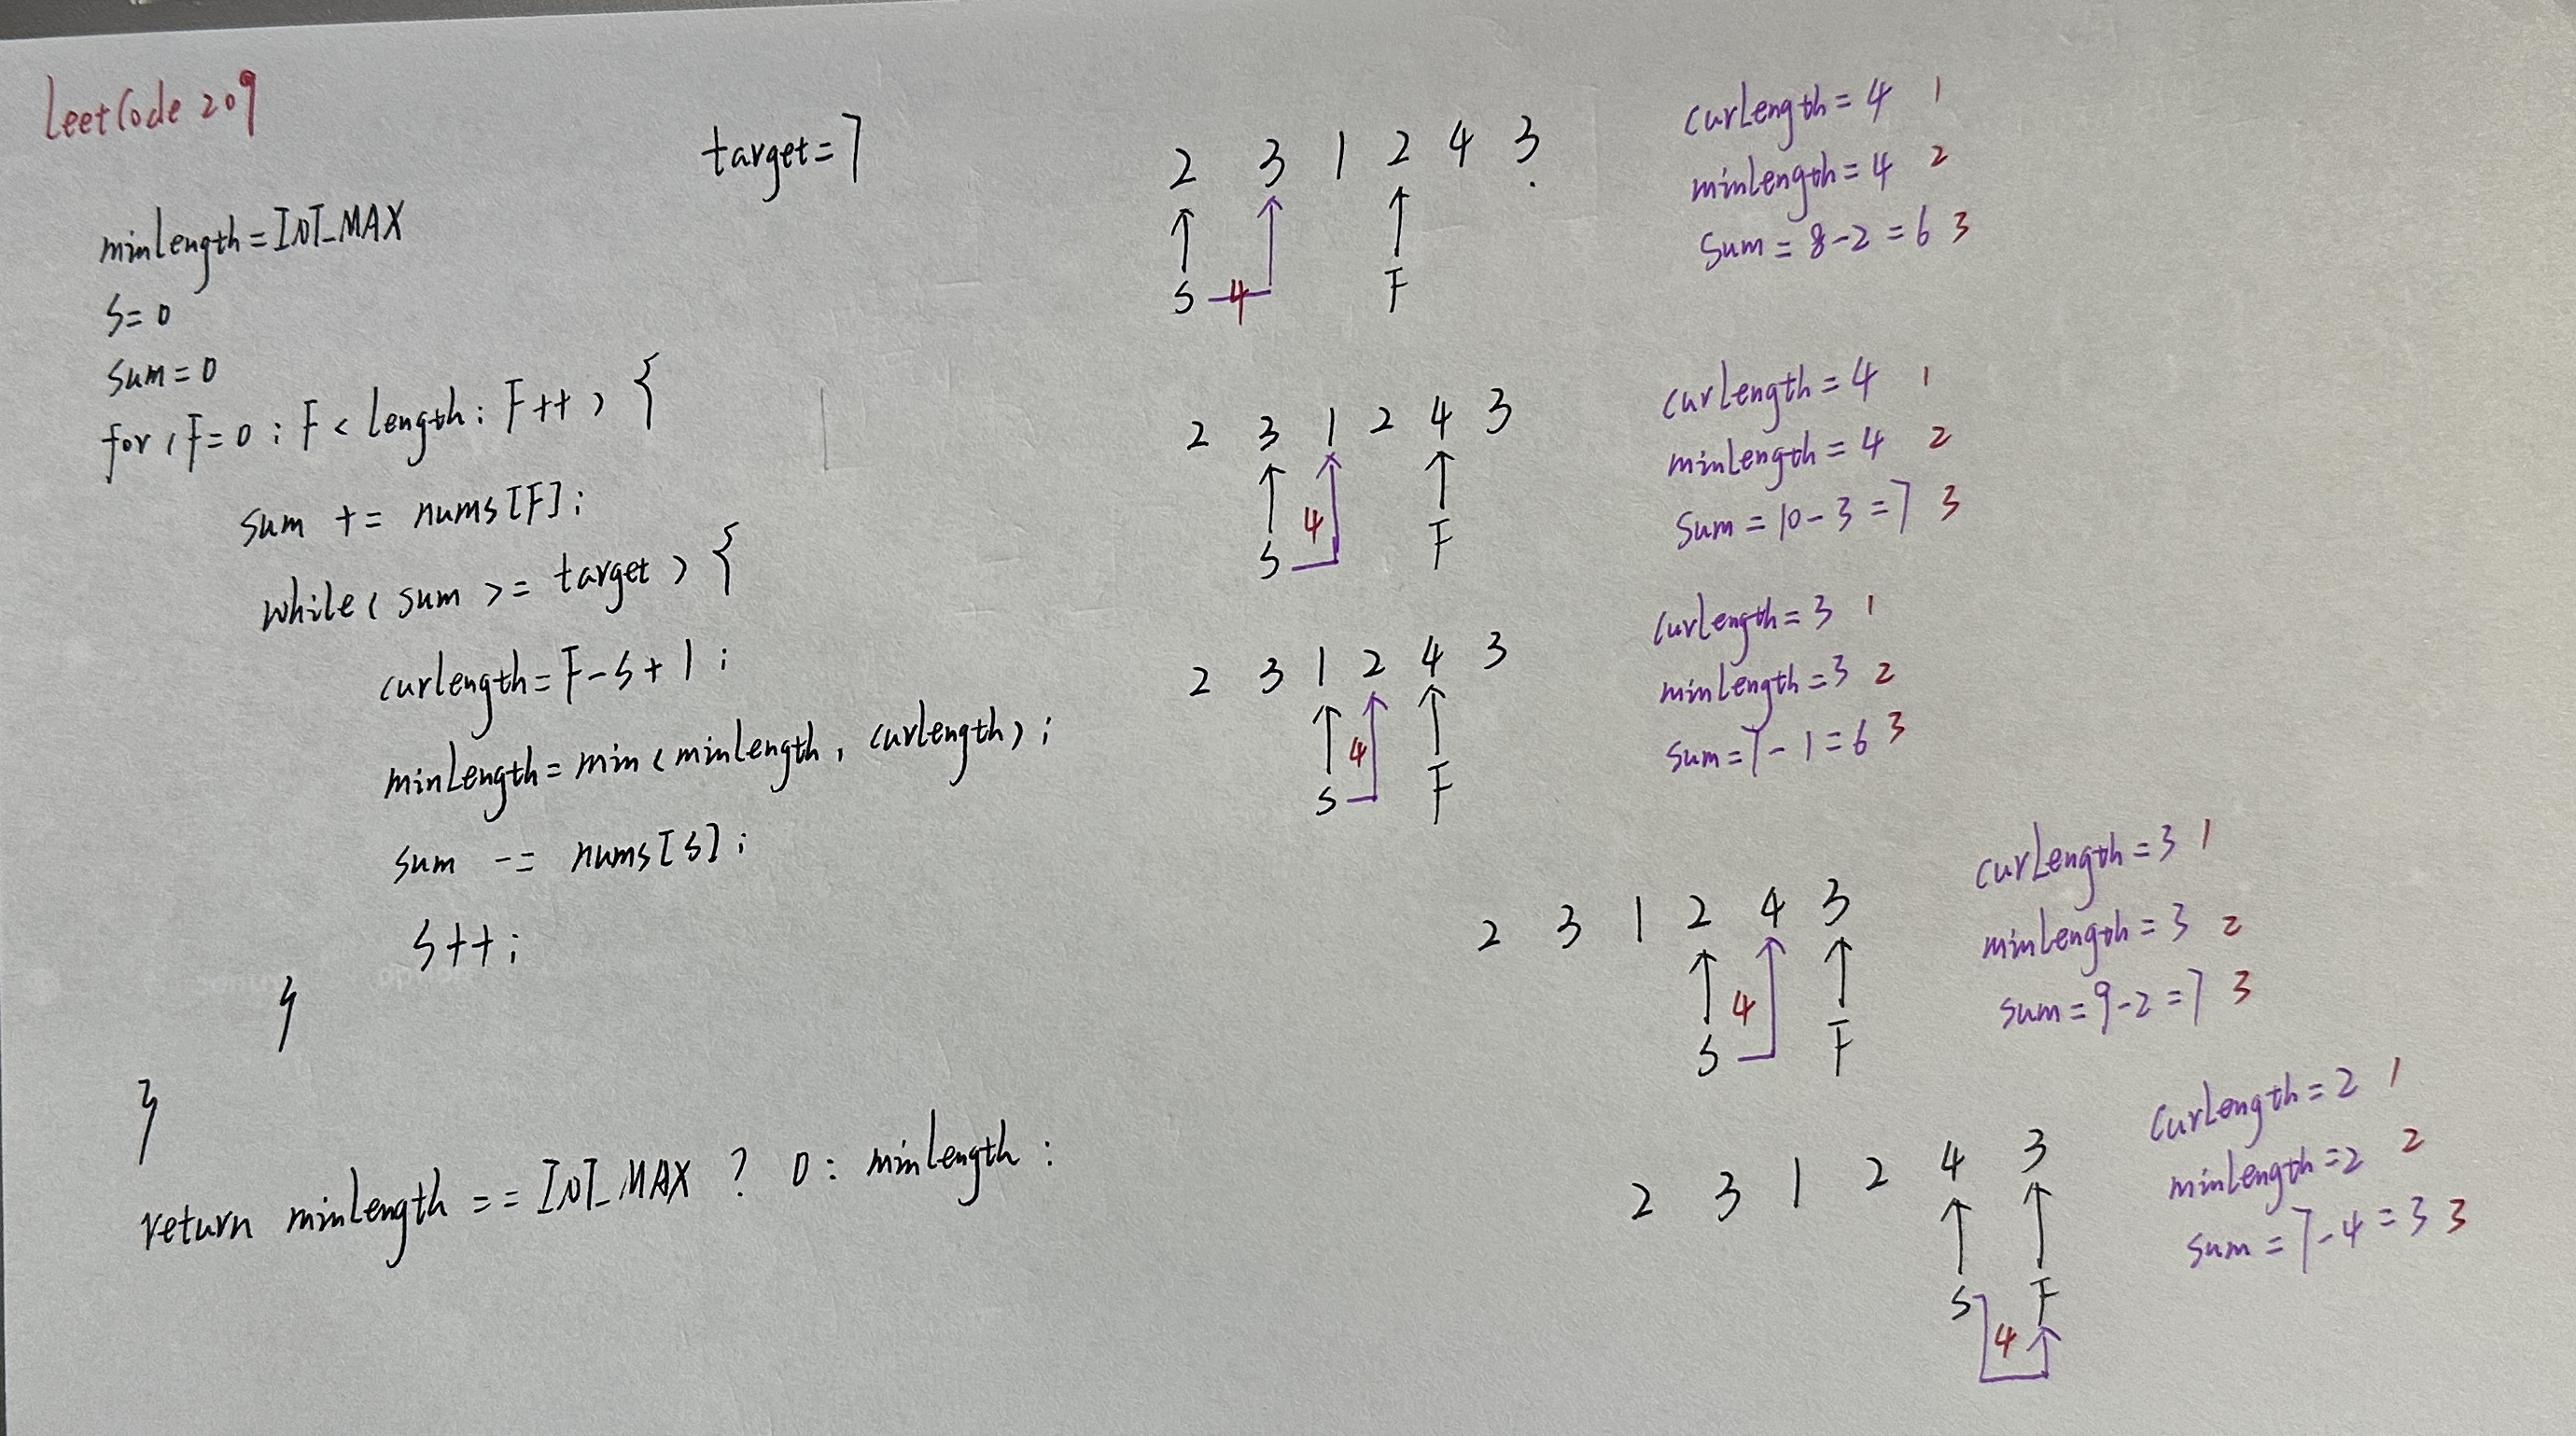 LeetCode 209
minLength = INT_MAX
S = 0
Sum = 0
for (F = 0 ; F < length ; F++) {
sum += nums[F];
while ( sum >= target ) {
curlength = F - S + 1 ;
minLength = min ( minLength , curlength ) ;
sum -= nums[S] ;
S++ ;
}
}
return minLength == INT_MAX ? 0 : minLength ;
target = 7
2 3 1 2 4 3
S 4 F
curLength = 4 1
minLength = 4 2
Sum = 8 - 2 = 6 3
2 3 1 2 4 3
4
S F
curLength = 4 1
minLength = 4 2
Sum = 10 - 3 = 7 3
2 3 1 2 4 3
4
S F
curLength = 3 1
minLength = 3 2
Sum = 7 - 1 = 6 3
2 3 1 2 4 3
4
S F
curLength = 3 1
minLength = 3 2
Sum = 9 - 2 = 7 3
2 3 1 2 4 3
S F
4
CurLength = 2 1
minLength = 2 2
Sum = 7 - 4 = 3 3